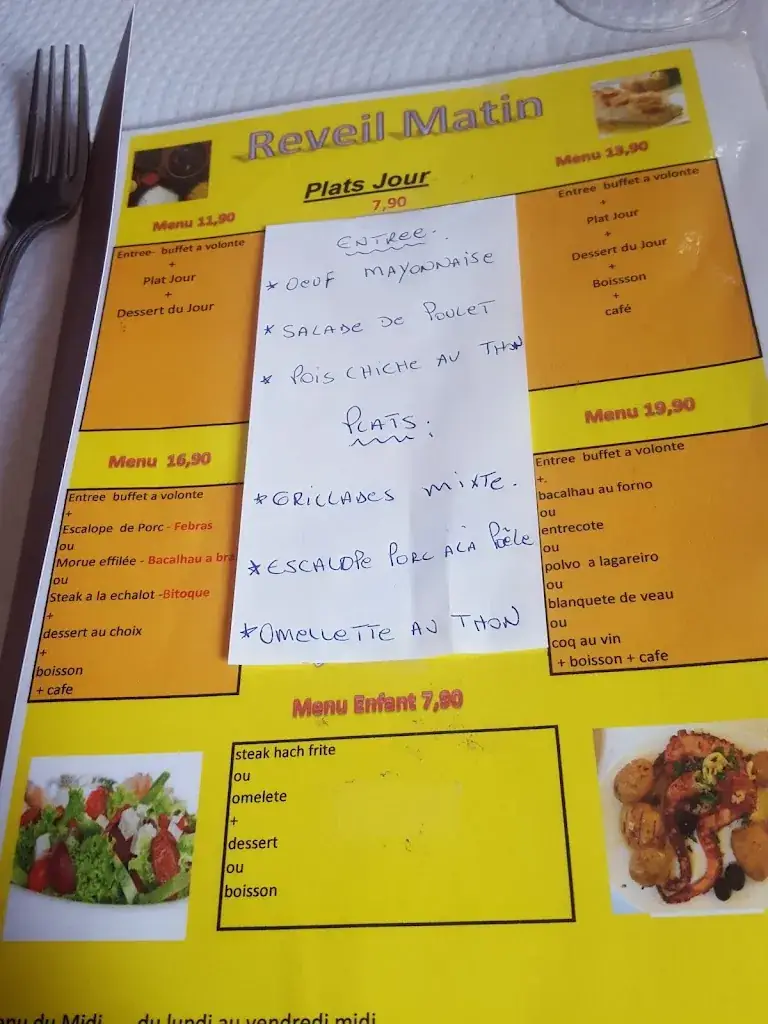 Reveil Matin
Plats Jour
7,90
Menu 11,90
Entree- buffet a volonte
+
Plat Jour
+
Dessert du Jour
Menu 13,90
Entree buffet a volonte
+
Plat Jour
+
Dessert du Jour
+
Boissson
+
café
ENTREE.
* OEUF MAYONNAISE
* SALADE DE POULET
* POIS CHICHE AU THON
PLATS:
* GRILLADES MIXTE.
* ESCALOPE PORC A LA Poêle
* OMELLETTE AU THON
Menu 16,90
Entree buffet a volonte
+
Escalope de Porc - Febras
ou
Morue effilée - Bacalhau a bra
ou
Steak a la echalot -Bitoque
+
dessert au choix
+
boisson
+ cafe
Menu 19,90
Entree buffet a volonte
+.
bacalhau au forno
ou
entrecote
ou
polvo a lagareiro
ou
blanquete de veau
ou
coq au vin
+ boisson + cafe
Menu Enfant 7,90
steak hach frite
ou
omelete
+
dessert
ou
boisson
enu du Midi du lundi au vendredi midi